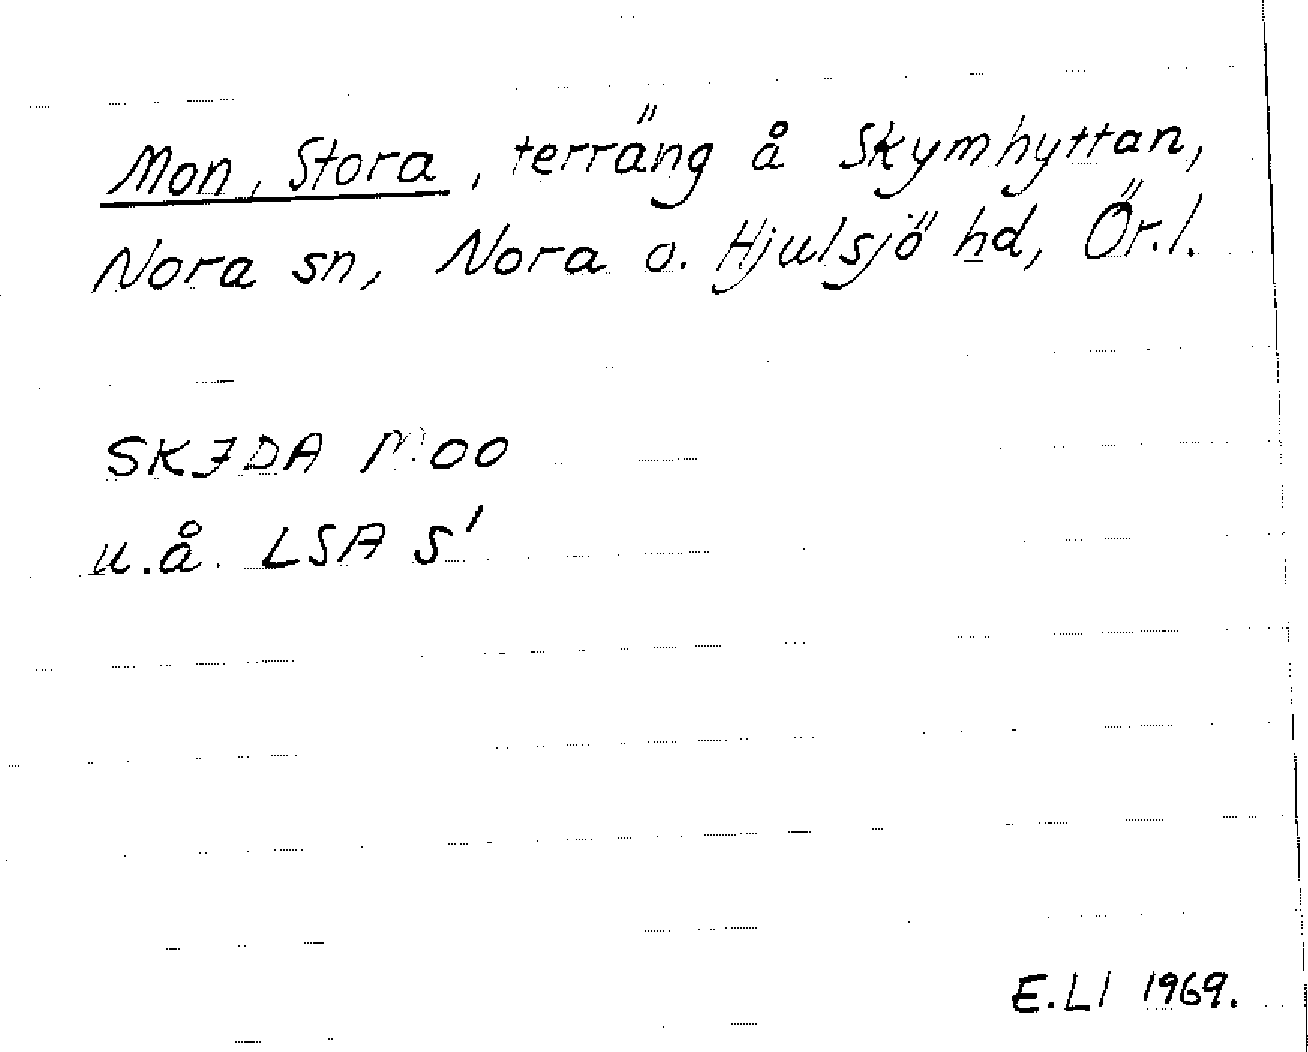 Mon, Stora, terräng å Skymhyttan,
Nora sn, Nora o. Hjulsjö hd, Ör.l.
SKJDA MOO
u.å. LSA S'
E.LI 1969.